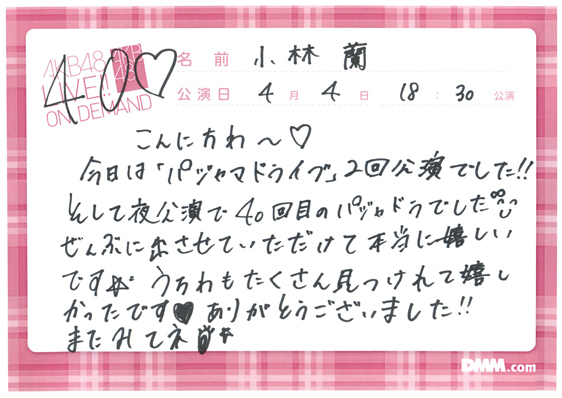 AKB48
LIVE!!
ON DEMAND
AKB
48
40♡
名前 小林 蘭
公演日 4月 4日 18:30 公演
こんにちわ〜♡
今日は「パジャマドライブ」2回公演でした!!
そして夜公演で40回目のパジャドラでした
ぜんぶに出させていただけて本当に嬉しい
です☆ うちわもたくさん見つけれて嬉し
かったです♥ ありがとうございました!!
またみてネ
DMM.com